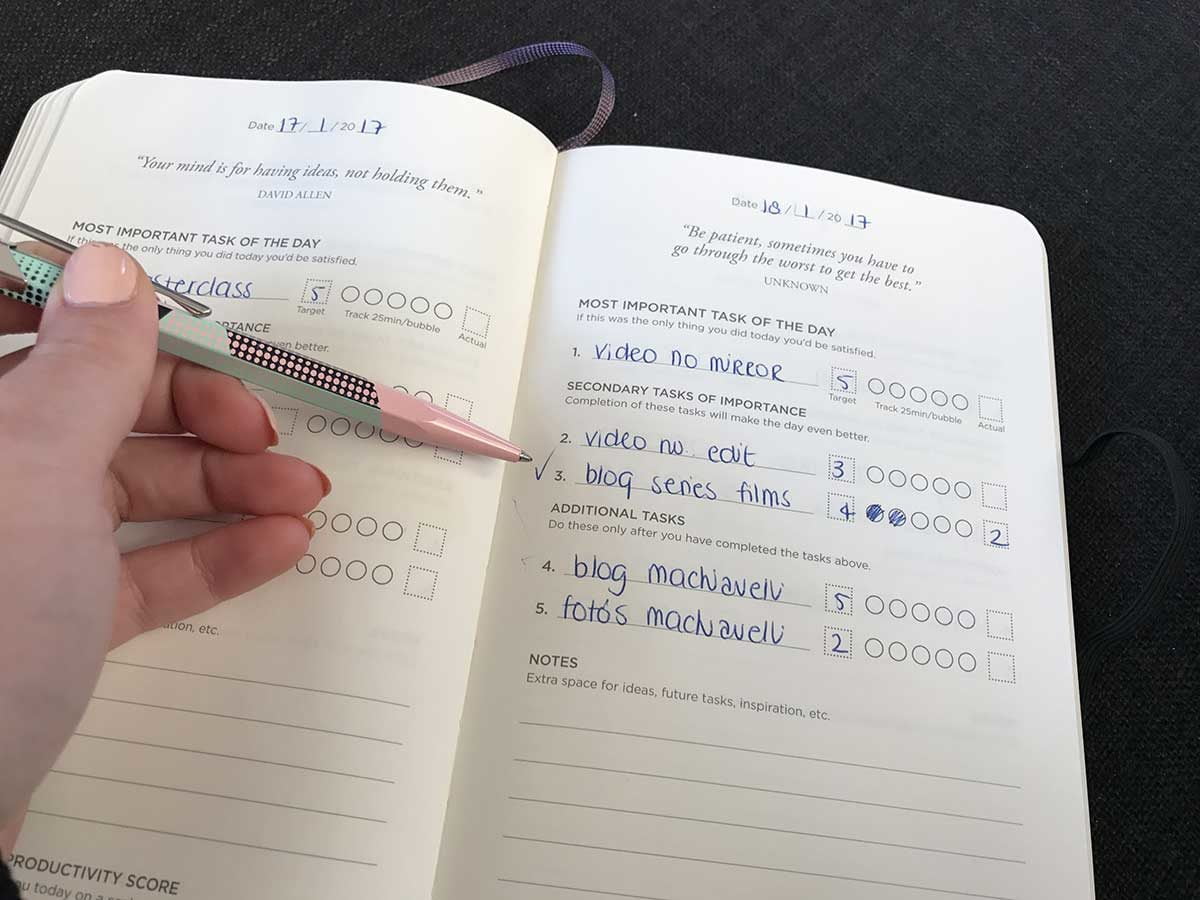 Date 17/1/2017
"Your mind is for having ideas, not holding them."
DAVID ALLEN
MOST IMPORTANT TASK OF THE DAY
If this was the only thing you did today you'd be satisfied.
5
Target Track 25min/bubble Actual
even better.
etc.
PRODUCTIVITY SCORE
today on a
Date 18/1/2017
"Be patient, sometimes you have to
go through the worst to get the best."
UNKNOWN
MOST IMPORTANT TASK OF THE DAY
If this was the only thing you did today you'd be satisfied.
1. video no mirror 5
Target Track 25min/bubble Actual
SECONDARY TASKS OF IMPORTANCE
Completion of these tasks will make the day even better.
2. video no.. edit 3
✓ 3. blog series films 4 2
ADDITIONAL TASKS
Do these only after you have completed the tasks above.
4. blog machiavelli 5
5. fotó's machiavelli 2
NOTES
Extra space for ideas, future tasks, inspiration, etc.